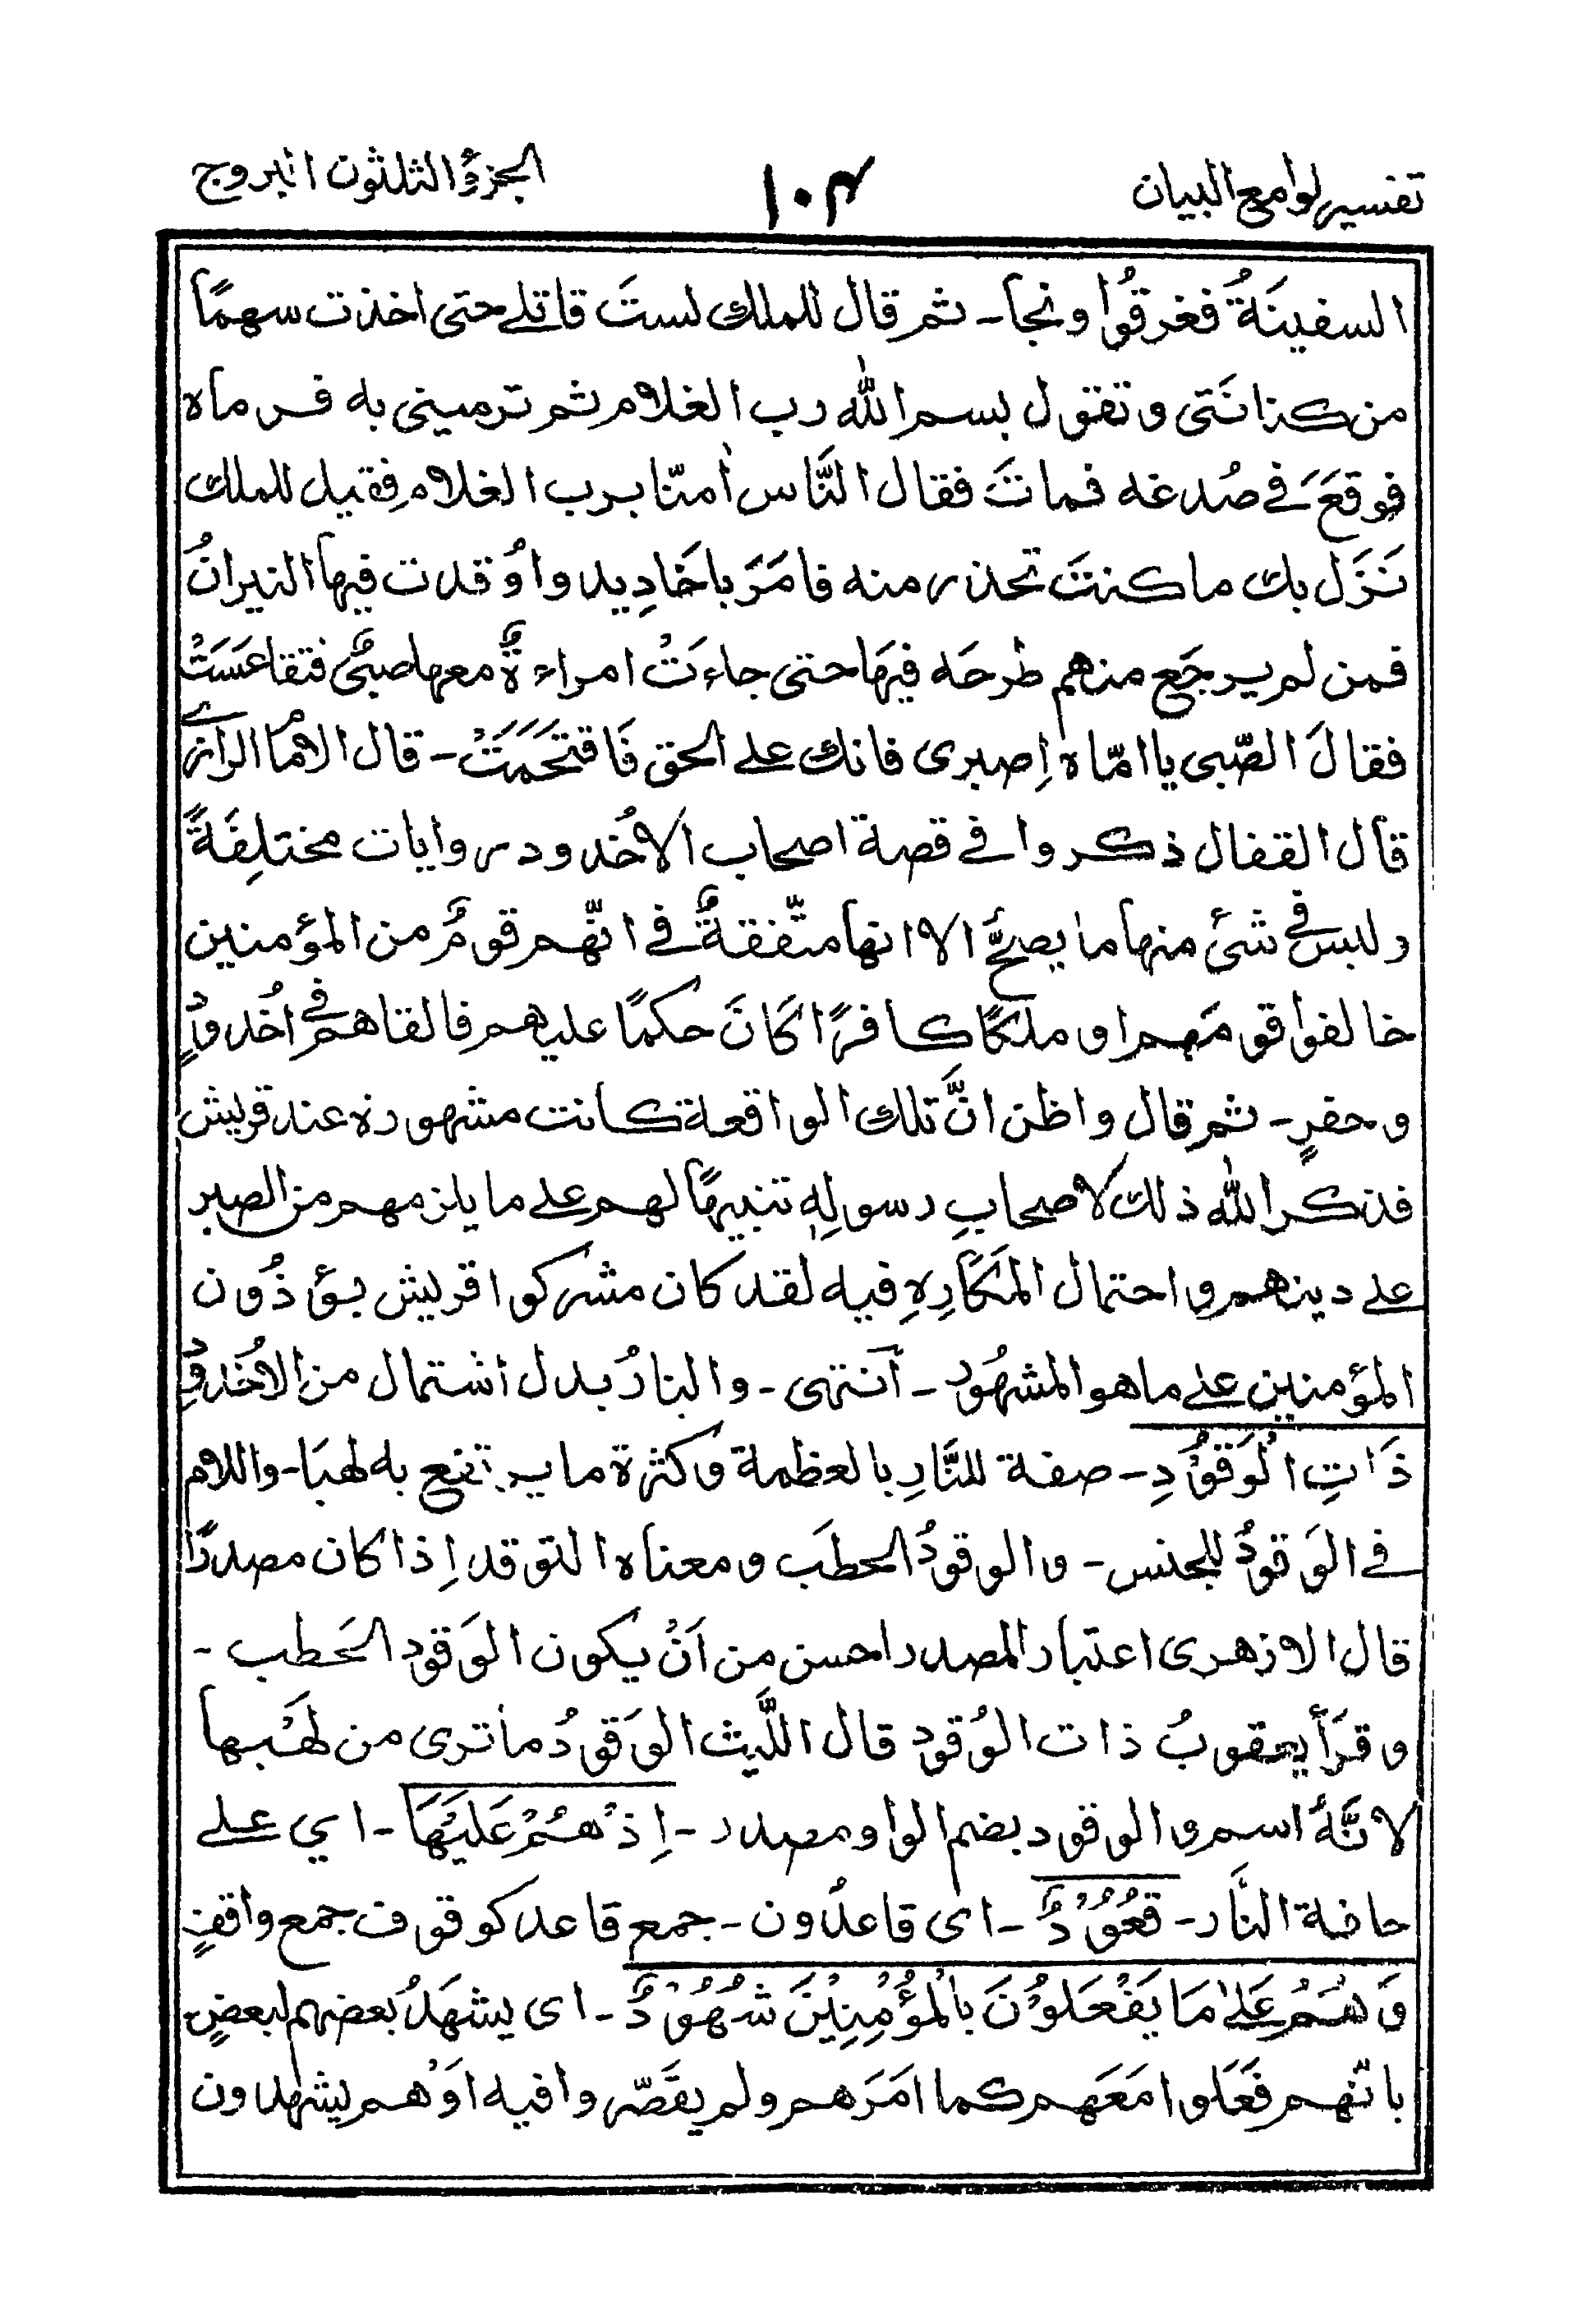 تفسير لوامع البيان
١٠٣
الجزؤ الثلثون البروج
السفينَةُ فغرقُوا ونجا ـ ثم قال للملك لستَ قاتلے حتى اخذت سهمًا
من كنانَتى وتقول بسم الله رب الغلام ثم ترمينى به فرماه
فوقعَ فے صُدغه فماتَ فقال النَّاس اٰمنّا برب الغلام فقيل للملك
نَزَل بك ما كنتَ تحذر منه فامَرَ باخَادِيد واُوقدت فيها النيرانُ
فمن لم يرجَع منهم طرحَه فيهَا حتى جاءَتْ امراءةٌ معها صبىٌّ فتقاعسَتْ
فقالَ الصّبى يا امّاه اِصبرى فانك علے الحق فَاقتحَمَتْ ـ قال الامام الرازے
قال القفال ذكروا فے قصة اصحاب الاُخدود روايات مختلِفَةً
وليس فے شئ منها ما يصحُّ الا انها متّفقةٌ فے انّهم قومٌ من المؤمنين
خالفوا قومَهم او ملكًا كافرًا كَانَ حكمًا عليهم فالقاهم فے اُخدودٍ
وحفرٍ ـ ثم قال واظن انَّ تلك الواقعة كانت مشهورة عند قريش
فذكر الله ذلك لاصحابِ رسولِهٖ تنبيهًا لهم علے ما يلزمهم من الصبر
علے دينهم واحتمال المَكَارِهِ فيه لقد كان مشركوا قريش يؤذُون
المؤمنين علے ما هو المشهُود ـ انتهى ـ والنارُ بدل اشتمال من الاُخدود
ذَاتِ الْوَقُوْدِ ـ صفة للنَّارِ بالعظمة وكثرة ما يرتفع به لهبَا ـ واللام
فے الوَقودُ للجنس ـ والوقودُ الحطَب ومعناه التوقد اِذا كان مصدرًا
قال الازهرى اعتبار المصدر احسن من اَنْ يكون الوَقود الحَطب ـ
وقرَأ يعقوبُ ذات الوُقود قال اللَّيث الوَقودُ ما ترى من لهَبها
لانَّهُ اسم والوقود بضم الواو مصدر ـ اِذْ هُمْ عَلَيْهَا ـ اي علے
حافة النَّار ـ قُعُوْدٌ ـ اى قاعدُون ـ جمع قاعد كوقوف جمع واقفٍ
وَهُمْ عَلٰے مَا يَفْعَلُوْنَ بِالْمُؤْمِنِيْنَ شُهُوْدٌ ـ اى يشهَدُ بَعضهم لبعضٍ
بانّهم فَعَلوا مَعَهم كما امَرَهم ولم يقَصّروا فيه اَوْهم يشهدون